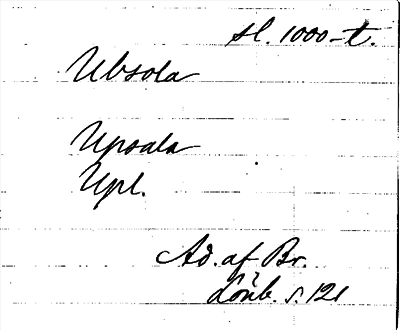 sl. 1000-t.
Ubsola
Upsala
Upl.
Ad. af Br.
Lönb. s. 121